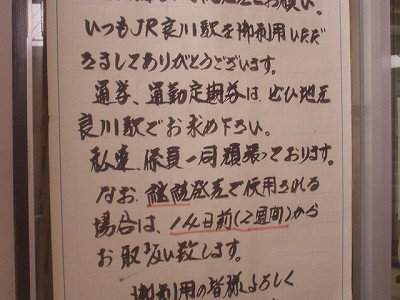 いつもJR良川駅を御利用いただ
きましてありがとうございます。
通学、通勤定期券は、ぜひ地元
良川駅でお求め下さい。
私達、係員一同頑張っております。
なお、継続発売で使用される
場合は、14日前(2週間)から
お取扱い致します。
御利用の皆様よろしく